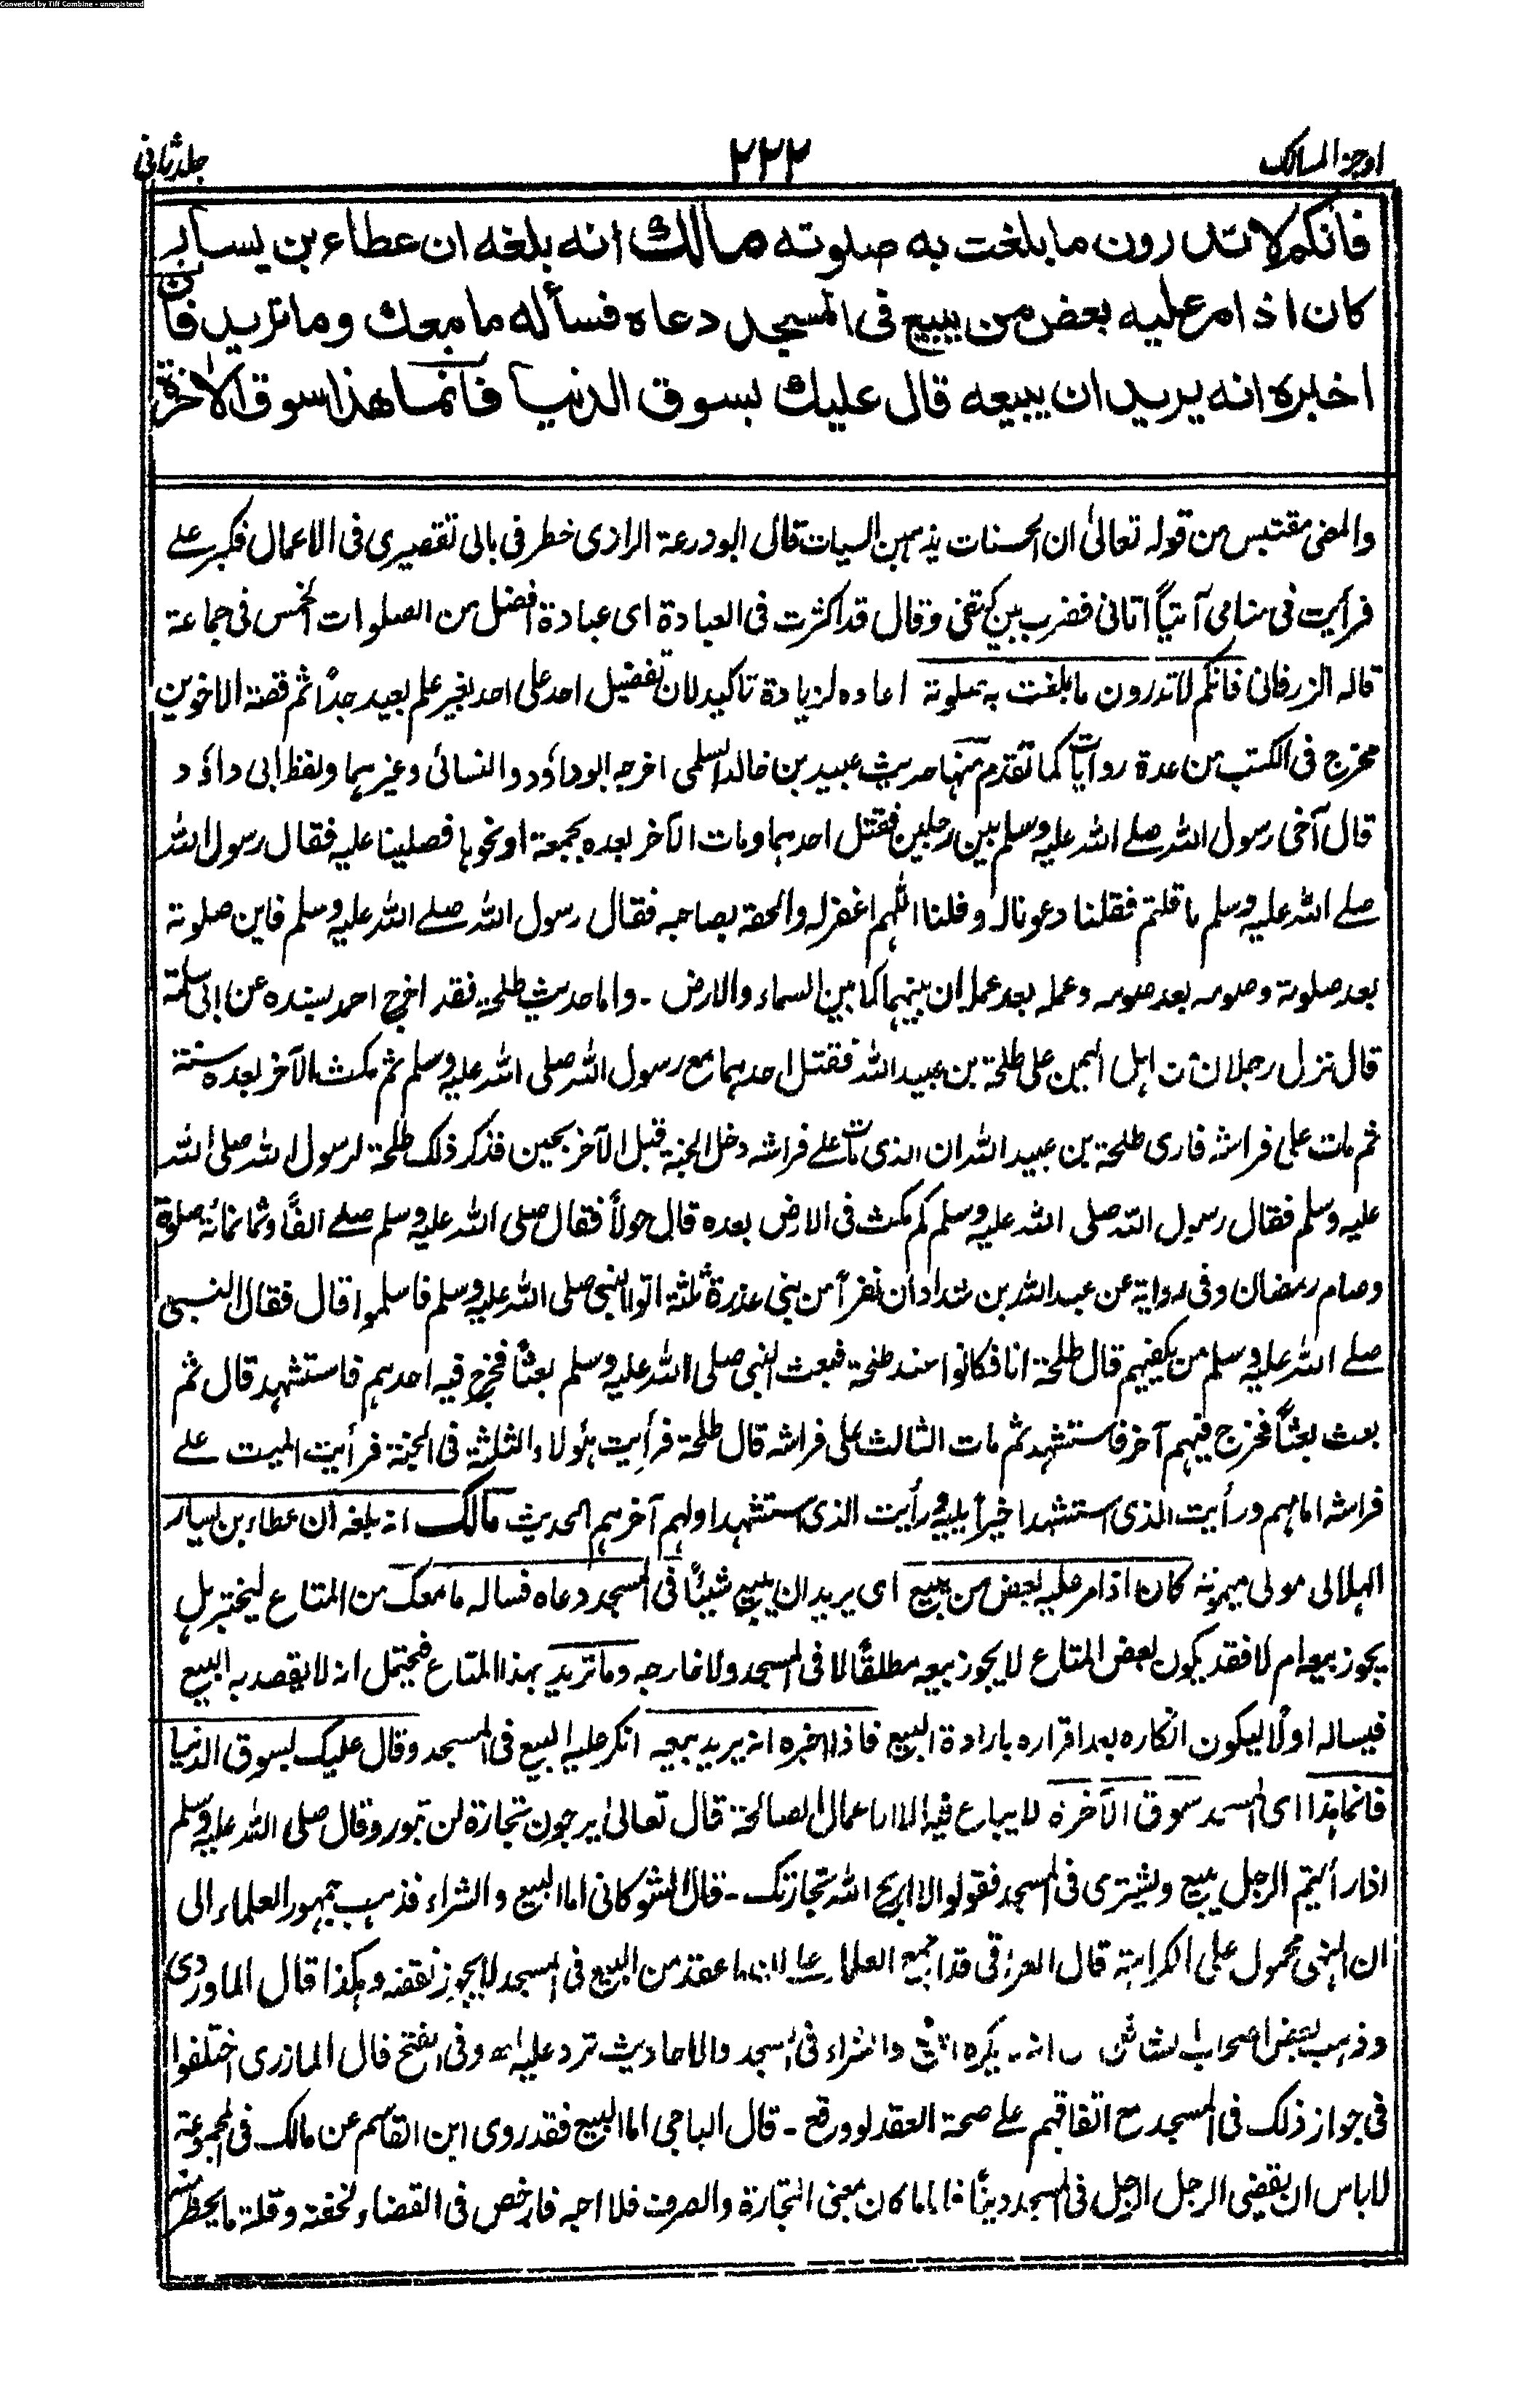 Converted by Tiff Combine - unregistered
اوجز المسالك ٢٢٢ جلد ثانی
فانكم لا تدرون ما بلغت به صلوته مالك انه بلغه ان عطاء بن يسار
كان اذا مر عليه بعض من يبيع فى المسجد دعاه فسأله ما معك وما تريد فان
اخبره انه يريد ان يبيعه قال عليك بسوق الدنيا فانما هذا سوق الآخرة
والمضى مقتبس من قوله تعالىٰ ان الحسنات يذهبن السيات قال ابو درعة الرازى خطر فى بالى تقصيرى فى الاعمال فكبر على
فرأيت فى منامى آتياً اتانى فضرب بين كتفى وقال قد اكثرت فى العبادة اى عبادة افضل من الصلوات الخمس فى جماعة
قاله الزرقانى فانكم لا تدرون ما بلغت به صلوته اعاده لزيادة تاكيد لان تفضيل احد على احد بغير علم بعيد جداً ثم قصة الاخوين
مخرج فى الكتب من عدة روايات كما تقدم منها حديث عبيد بن خالد السلمى اخرجه ابو داؤد والنسائى وغيرهما ولفظ ابى داؤد
قال آخى رسول الله صلى الله عليه وسلم بين رجلين فقتل احدهما ومات الآخر بعده بجمعة او نحوها فصلينا عليه فقال رسول الله
صلى الله عليه وسلم ما قلتم فقلنا دعونا له وقلنا اللهم اغفر له والحقه بصاحبه فقال رسول الله صلى الله عليه وسلم فاين صلوته
بعد صلوته وصومه بعد صومه وعمله بعد عمله ان بينهما كما بين السماء والارض - واما حديث طلحة فقد اخرج احمد بسنده عن ابى سلمة
قال نزل رجلان من اهل اليمن على طلحة بن عبيد الله فقتل احدهما مع رسول الله صلى الله عليه وسلم ثم مكث الآخر بعده سنة
ثم مات على فراشه فارى طلحة بن عبيد الله ان الذى مات على فراشه دخل الجنة قبل الآخر بحين فذكر ذلك طلحة لرسول الله صلى الله
عليه وسلم فقال رسول الله صلى الله عليه وسلم كم مكث فى الارض بعده قال حولاً فقال صلى الله عليه وسلم صلى الفاً وثمانمائة صلوة
وصام رمضان وفى رواية عن عبد الله بن شداد ان نفراً من بنى عذرة ثلثة اتوا النبى صلى الله عليه وسلم فاسلموا قال فقال النبى
صلى الله عليه وسلم من يكفيهم قال طلحة انا فكانوا عند طلحة فبعث النبى صلى الله عليه وسلم بعثاً فخرج فيه احدهم فاستشهد قال ثم
بعث بعثاً فخرج فيهم آخر فاستشهد ثم مات الثالث على فراشه قال طلحة فرأيت هؤلاء الثلثة فى الجنة فرأيت الميت على
فراشه امامهم ورأيت الذى استشهد اخيراً يليه ورأيت الذى استشهد اولهم آخرهم الحديث مالك انه بلغه ان عطاء بن يسار
الهلالى مولى ميمونة كان اذا مر عليه بعض من يبيع اى يريد ان يبيع شيئاً فى المسجد دعاه فساله ما معك من المتاع ليختبر هل
يجوز بيعه ام لا فقد يكون بعض المتاع لا يجوز بيعه مطلقاً لا فى المسجد ولا خارجه وما تريد بهذا المتاع فيحتمل انه لا يقصد به البيع
فيساله اولاً ليكون انكاره بعد اقراره بارادة البيع فاذا اخبره انه يريد بيعه انكر عليه البيع فى المسجد وقال عليك بسوق الدنيا
فانما هذا اى المسجد سوق الآخرة لا يباع فيه الا الاعمال الصالحة قال تعالىٰ يرجون تجارة لن تبور وقال صلى الله عليه وسلم
اذا رأيتم الرجل يبيع ويشترى فى المسجد فقولوا لا اربح الله تجارتك - قال الشوكانى اما البيع والشراء فذهب جمهور العلماء الى
ان النهى محمول على الكراهة قال العراقى قد اجمع العلماء على ان ما عقد من البيع فى المسجد لا يجوز نقضه وهكذا قال الماوردى
وذهب بعض اصحاب الشافعى انه يكره البيع والشراء فى المسجد والاحاديث ترد عليه اه وفى الفتح قال المازرى اختلفوا
فى جواز ذلك فى المسجد مع اتفاقهم على صحة العقد لو وقع - قال الباجى اما البيع فقد روى ابن القاسم عن مالك فى المجموعة
لا باس ان يقضى الرجل الرجل فى المسجد ديناً فاما ما كان بمعنى التجارة والصرف فلا احبه فارخص فى القضاء لخفته وقلة ما يحظر منه